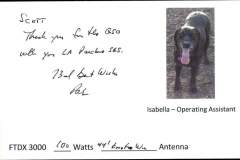 SCOTT
Thank you for the QSO
with you LA Parishes SES.
73 and Best Wishes
Isabella – Operating Assistant
FTDX 3000 100 Watts 44' Wire Antenna